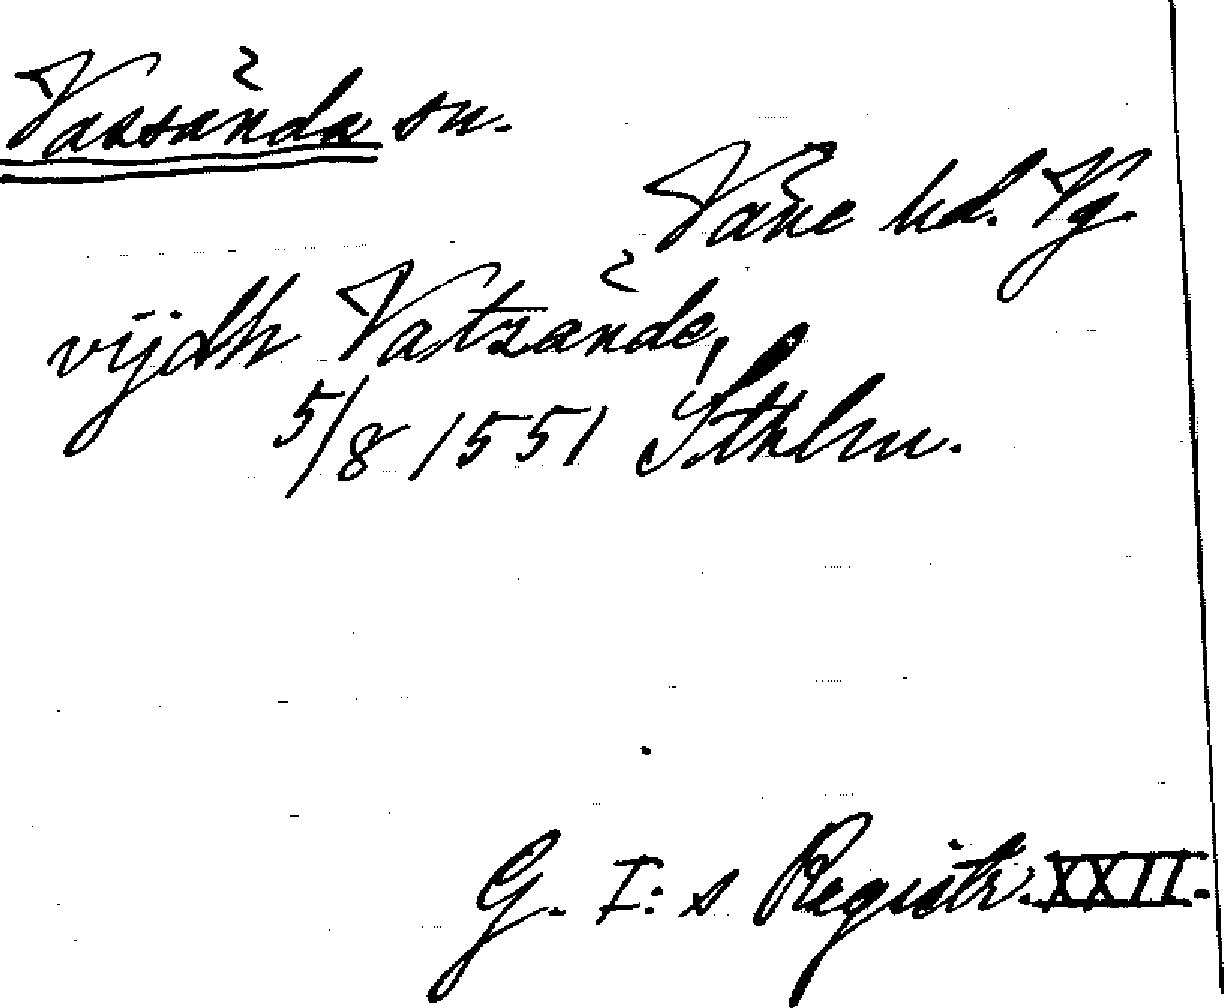 Vassända sn.
Väne hd. Vg
vijdh Vatzände,
5/8 1551 Sthlm.
G. I:s Registr. XXII.